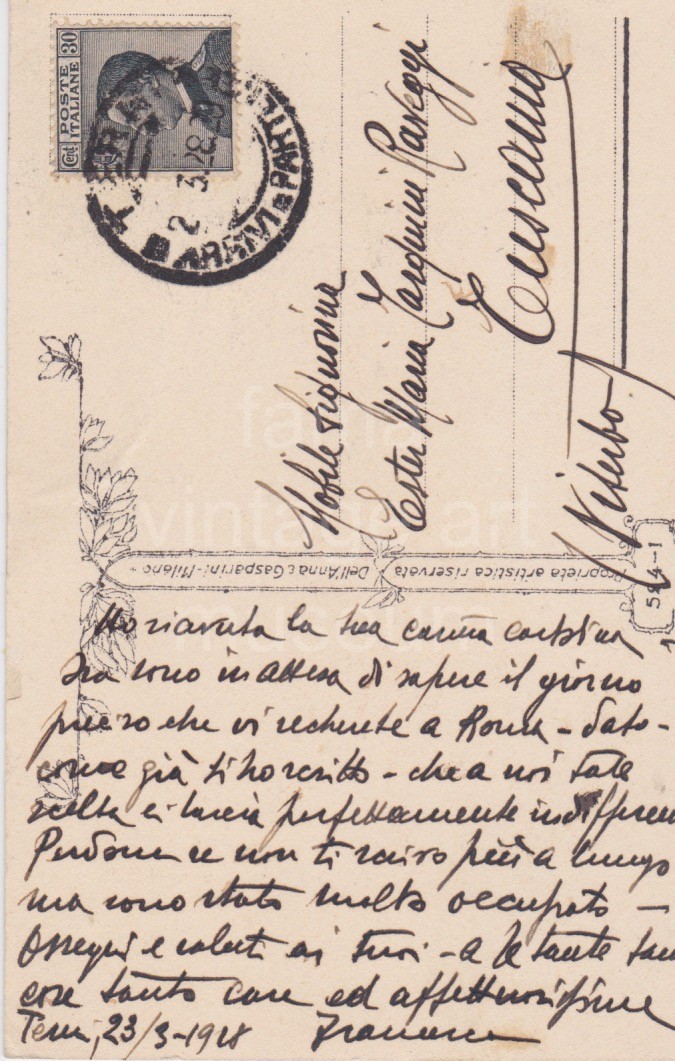 POSTE ITALIANE
Cent 30
ARRIVI E PARTENZE
2 3.28.20
Nobile Signorina
Ester Maria Tarquini Raveggi
Tuscania
(Viterbo)
Proprieta artistica riservata
Dell'Anna & Gasparini - Milano
524-1
farfia
vintage art
museum
Ho ricevuta la tua carina cartolina
Ora sono in attesa di sapere il giorno
preciso che vi recherete a Roma - dato -
come già ti ho scritto - che a noi tale
scelta ci lascia perfettamente indifferen
Perdona se non ti scrivo più a lungo
ma sono stato molto occupato -
Ossequi e saluti ai tuoi - a te tante tan
cose tanto care ed affettuosissime
Terni, 23/3-1928 Francesco